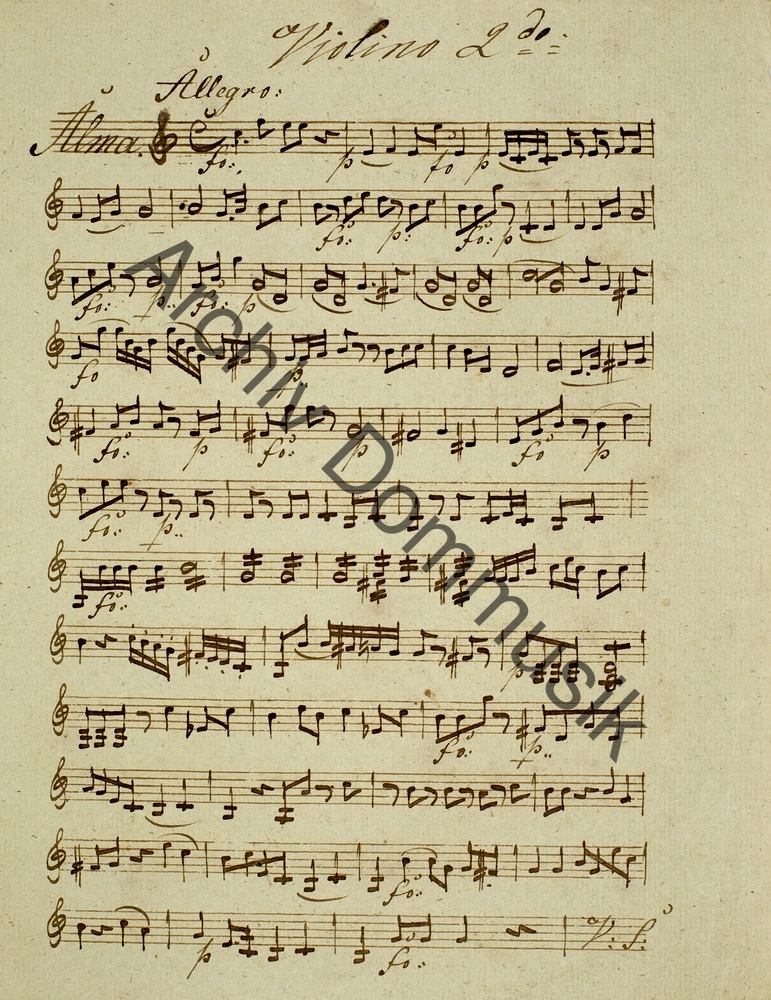 Violino 2do:
Allegro:
Alma.
fo: p fo p
fo: p: fo: p
fo: p: fo: p
fo p
fo: p fo: p fo: p
fo: p:
fo:
p
fo: p:
fo:
p fo: V: S:
Archiv Dommusik